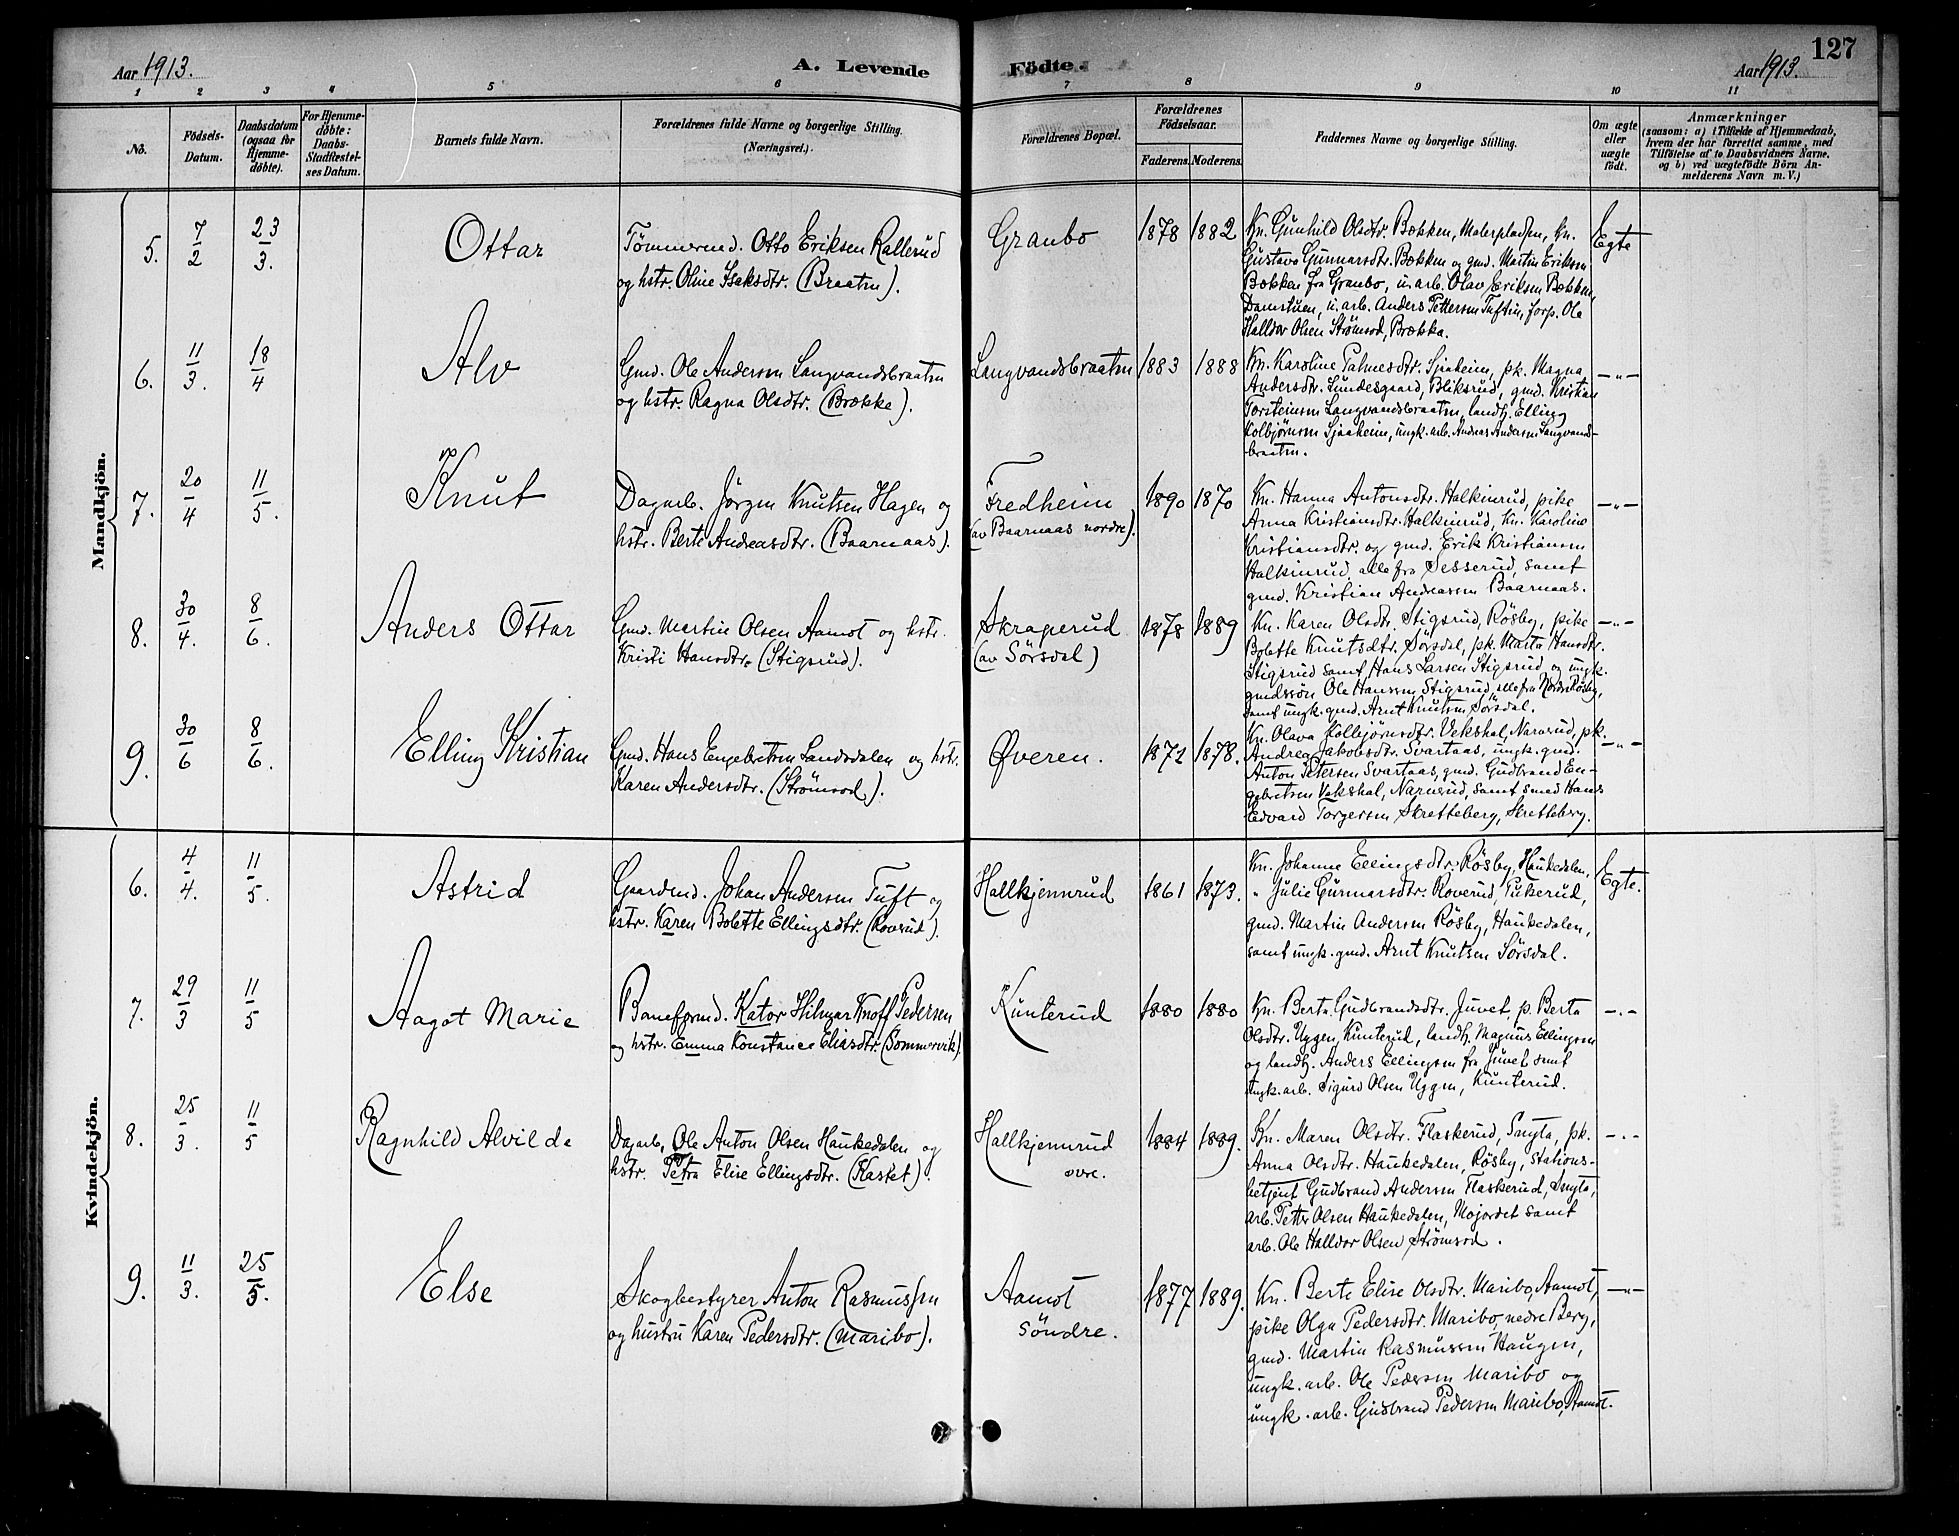 127
Aar 1913.
A. Levende
Födte.
Aar 1913.
1 2 3 4 5 6 7 8 9 10 11
No.
Födsels-
Datum.
Daabsdatum
(ogsaa for
Hjemme-
döbte).
For Hjemme-
döbte:
Daabs-
Stadfæstel-
ses Datum.
Barnets fulde Navn.
Forældrenes fulde Navne og borgerlige Stilling.
(Næringsvei.)
Forældrenes Bopæl.
Forældrenes
Födselsaar.
Faderens. Moderens.
Faddernes Navne og borgerlige Stilling.
Om ægte
eller
uægte
födt.
Anmærkninger
(saasom: a) i Tilfælde af Hjemmedaab,
hvem der har forrettet samme, med
Tilföielse af to Daabsvidners Navne,
og b) ved uægtefödte Börn An-
melderens Navn m. V.)
Mandkjön.
5. 7/2 23/3. Ottar
Tömmermd. Otto Eriksen Rallerud
og hstr. Oline Isaksdtr. (Braatin).
Granbo 1878 1882
Kn. Gunhild Olsdtr. Bækken, Malerpladsen, kn.
Gustava Gunnarsdtr. Bækken og gmd. Martin Eriksen
Bækken fra Granbo, u. arb. Olav Eriksen Bækken,
Damstuen, u. arb. Anders Pettersen Tuftin, forp. Ole
Halldor Olsen Strömsod, Brække.
Egte
6. 11/3. 18/4 Alv
Gmd. Ole Andersen Langvandsbraatin
og hstr. Ragna Olsdtr. (Brække).
Langvandsbraatin 1883 1888
Kn. Karoline Palmesdtr. Sjaaheim, pk. Magna
Andersdtr. Lundesgaard, Bliksrud, gmd. Kristian
Torsteinsen Langvandsbraatin, landh. Elling
Kolbjörnsen Sjaaheim, ungk. arb. Andreas Andersen Langvands-
braatin.
—"—
7. 20/4 11/5. Knut
Dagarb. Jörgen Knutsen Hagen og
hstr. Berte Andreasdtr. (Baarnaas).
Fredheim
(av Baarnaas nordre). 1890 1870
Kn. Hanna Antonsdtr. Halkinrud, pike
Anna Kristiansdtr. Halkinrud, kn. Karoline
Kristiansdtr. og gmd. Erik Kristiansen
Halkinrud, alle fra Sesserud, samt
gmd. Kristian Andreassen Baarnaas.
—"—
8. 30/4. 8/6. Anders Ottar
Gmd. Martin Olsen Aamot og hstr.
Kristi Hansdtr. (Stigsrud).
Skraperud
(av Sörsdal) 1878 1889
Kn. Karen Olsdtr. Stigsrud, Rösby, pike
Bolette Knutsdtr. Sörsdal, pk. Marta Hansdtr.
Stigsrud samt Hans Larsen Stigsrud og ungk.
gmdssön Ole Hansen Stigsrud, alle fra Nordre Rösby,
samt ungk. gmd. Arnt Knutsen Sörsdal.
—"—
9. 30/6 8/6. Elling Kristian
Gmd. Hans Engebretsen Landsdalen og hstr.
Karen Andersdtr. (Strömsod).
Øveren. 1872 1878.
Kn. Olava Kolbjörnsdtr. Vekshal, Narverud, pk.
Andrea Jakobsdtr. Svartaas, ungk. gmd.
Anton Petersen Svartaas, gmd. Gudbrand En-
gebretsen Vekshal, Narverud, samt smed Hans
Edvard Torgersen Skretteberg, Skretteberg.
—"—
Kvindekjön.
6. 4/4. 11/5. Astrid
Gaardmd. Johan Andersen Tuft og
hstr. Karen Bolette Ellingsdtr. (Roverud).
Hallkjennrud 1861 1873.
Kn. Johanne Ellingsdtr. Rösby, Haukedalen,
" Julie Gunnarsdtr. Roverud, Tukerud,
gmd. Martin Andersen Rösby, Haukedalen,
samt ungk. gmd. Arnt Knutsen Sörsdal.
Egte.
7. 29/3 11/5 Aagot Marie
Baneformd. Kator Hilmar Knoff Pedersen
og hstr. Emma Konstance Eliasdtr. (Sommervik).
Kunterud 1880 1880
Kn. Berta Gudbrandsdtr. Juvet, p. Berta
Olsdtr. Uggen, Kunterud, landh. Magnus Ellingsen
og landh. Anders Ellingsen fra Juvet samt
ungk. arb. Sigurd Olsen Uggen, Kunterud.
—"—
8. 25/3. 11/5 Ragnhild Alvilde
Dagarb. Ole Anton Olsen Haukedalen og
hstr. Petra Elise Ellingsdtr. (Kastet).
Hallkjennrud
övre. 1884 1889.
Kn. Maren Olsdtr. Flaskerud, Snyta, pk.
Anna Olsdtr. Haukedalen, Rösby, stations-
betjent Gudbrand Andersen Flaskerud, Snyta,
arb. Petter Olsen Haukedalen, Mojordet samt
arb. Ole Halldor Olsen Strömsod.
—"—
9. 11/3. 25/5. Else
Skogbestyrer Anton Rasmussen
og hustru Karen Pedersdtr. (Maribo).
Aamot
Söndre. 1877 1889.
Kn. Berte Elise Olsdtr. Maribo, Aamot,
pike Olga Pedersdtr. Maribo, nedre Berg,
gmd. Martin Rasmussen Haugen,
ungk. arb. Ole Pedersen Maribo og
ungk. arb. Gudbrand Pedersen Maribo, Aamot.
—"—